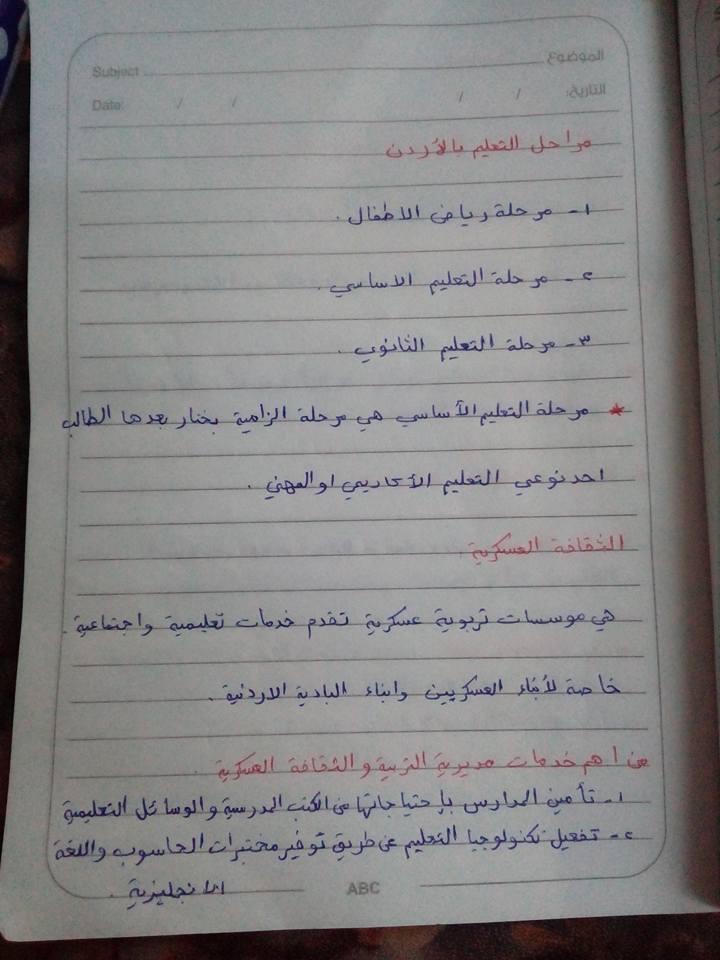 الموضوع Subject
التاريخ: / / / / Date:
مراحل التعليم بالأردن
١- مرحلة رياض الاطفال .
٢- مرحلة التعليم الاساسي .
٣- مرحلة التعليم الثانوي .
* مرحلة التعليم الأساسي هي مرحلة الزامية يختار بعدها الطالب
احد نوعي التعليم الأكاديمي او المهني .
الثقافة العسكرية .
هي موسسات تربوية عسكرية تقدم خدمات تعليمية واجتماعية .
خاصة لأبناء العسكريين وابناء البادية الاردنية .
من اهم خدمات مديرية التربية والثقافة العسكرية .
١- تأمين المدارس بإحتياجاتها من الكتب المدرسية والوسائل التعليمية
٢- تفعيل تكنولوجيا التعليم عن طريق توفير مختبرات الحاسوب واللغة
الانجليزية .
ABC